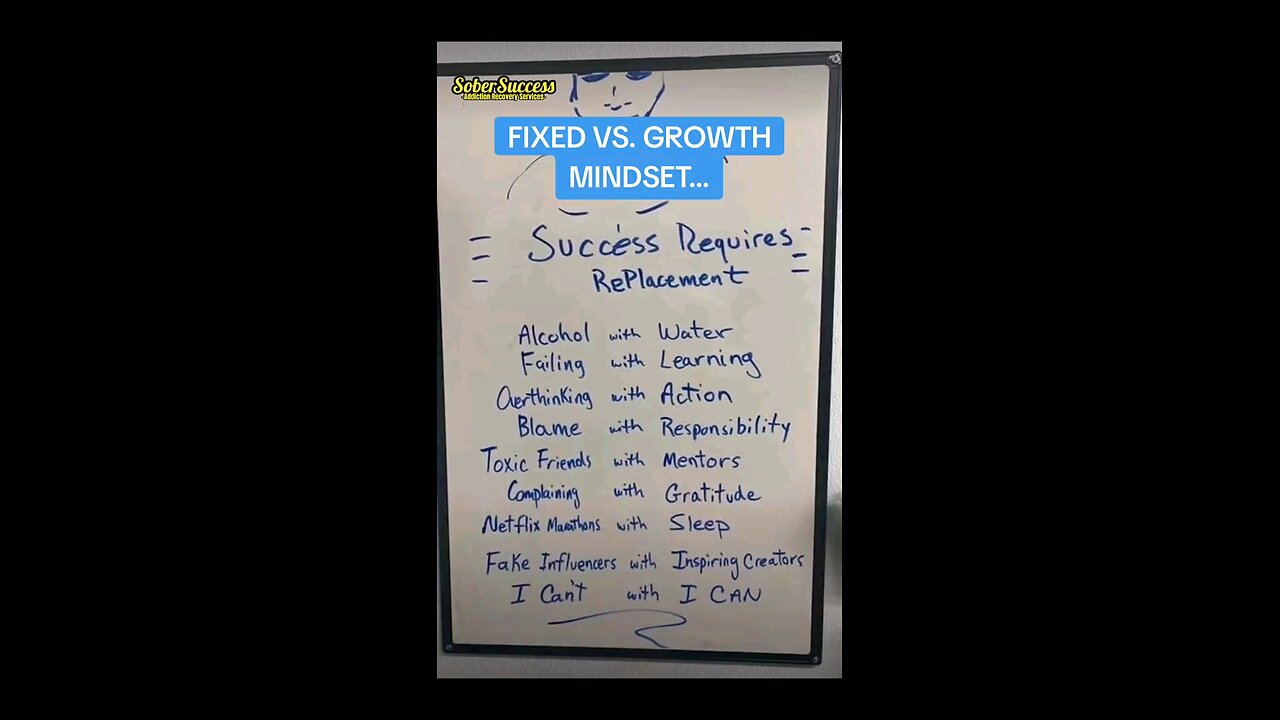 SoberSuccess
-Addiction Recovery Services-
FIXED VS. GROWTH
MINDSET...
Success Requires
Replacement
Alcohol with Water
Failing with Learning
Overthinking with Action
Blame with Responsibility
Toxic Friends with Mentors
Complaining with Gratitude
Netflix Marathons with Sleep
Fake Influencers with Inspiring Creators
I Can't with I CAN